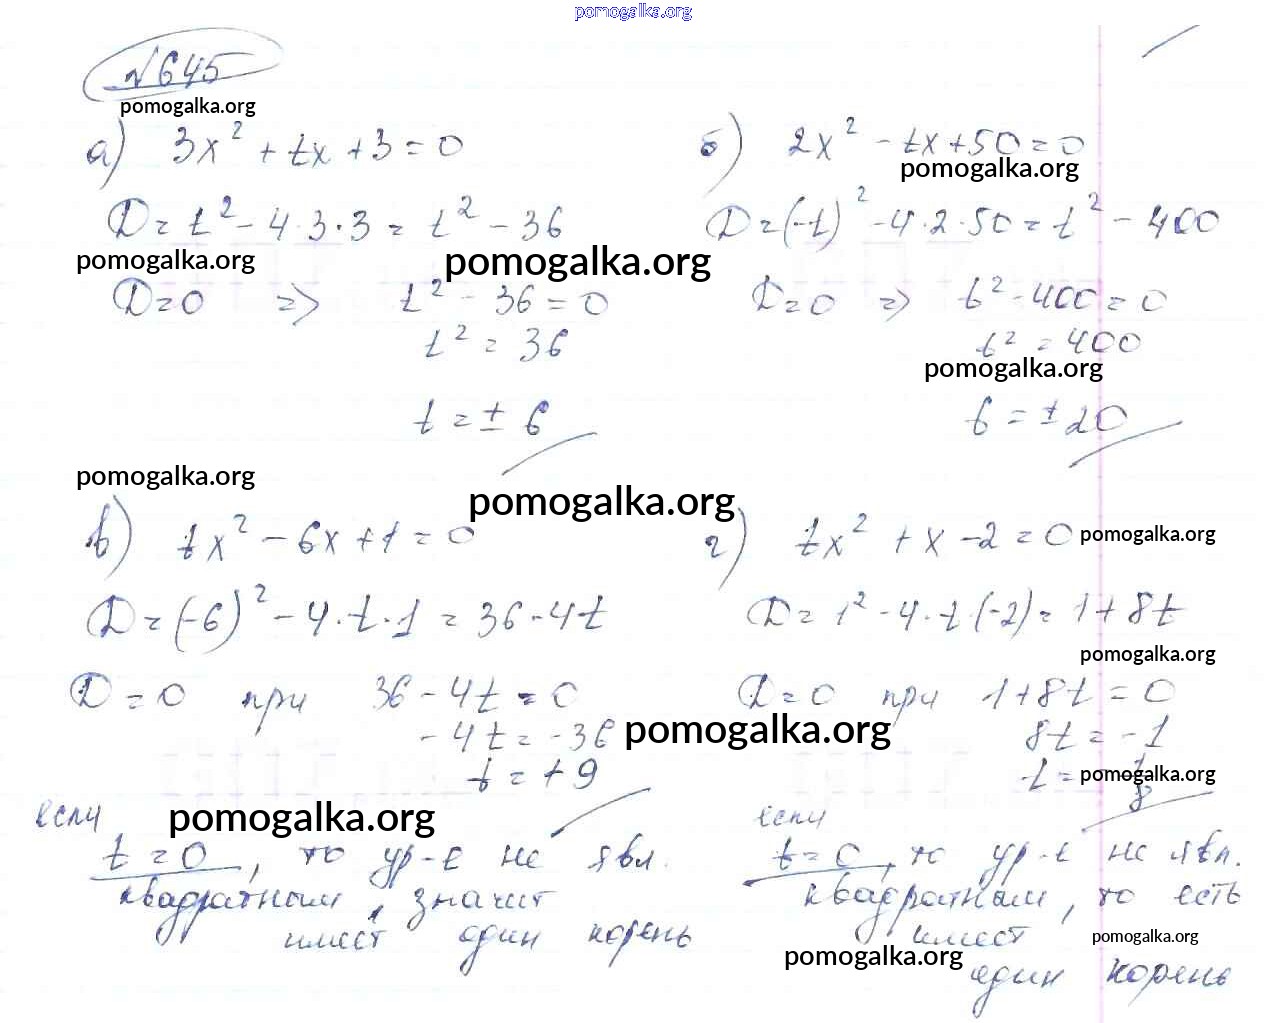 pomogalka.org
№645
pomogalka.org
а) 3x² + tx + 3 = 0
D = t² - 4·3·3 = t² - 36
pomogalka.org
pomogalka.org
D = 0 => t² - 36 = 0
t² = 36
t = ± 6
pomogalka.org
б) 2x² - tx + 50 = 0
pomogalka.org
D = (-t)² - 4·2·50 = t² - 400
D = 0 => t² - 400 = 0
t² = 400
pomogalka.org
t = ± 20
pomogalka.org
в) tx² - 6x + 1 = 0
D = (-6)² - 4·t·1 = 36 - 4t
D = 0 при 36 - 4t = 0
- 4t = - 36
pomogalka.org
t = + 9
если
pomogalka.org
t = 0, то ур-е не явл.
квадратным, значит
имеет один корень
г) tx² + x - 2 = 0
pomogalka.org
D = 1² - 4·t·(-2) = 1 + 8t
pomogalka.org
D = 0 при 1 + 8t = 0
8t = - 1
t = - 1/8
pomogalka.org
если
t = 0, то ур-е не явл.
квадратным, то есть
имеет
pomogalka.org
pomogalka.org
один корень